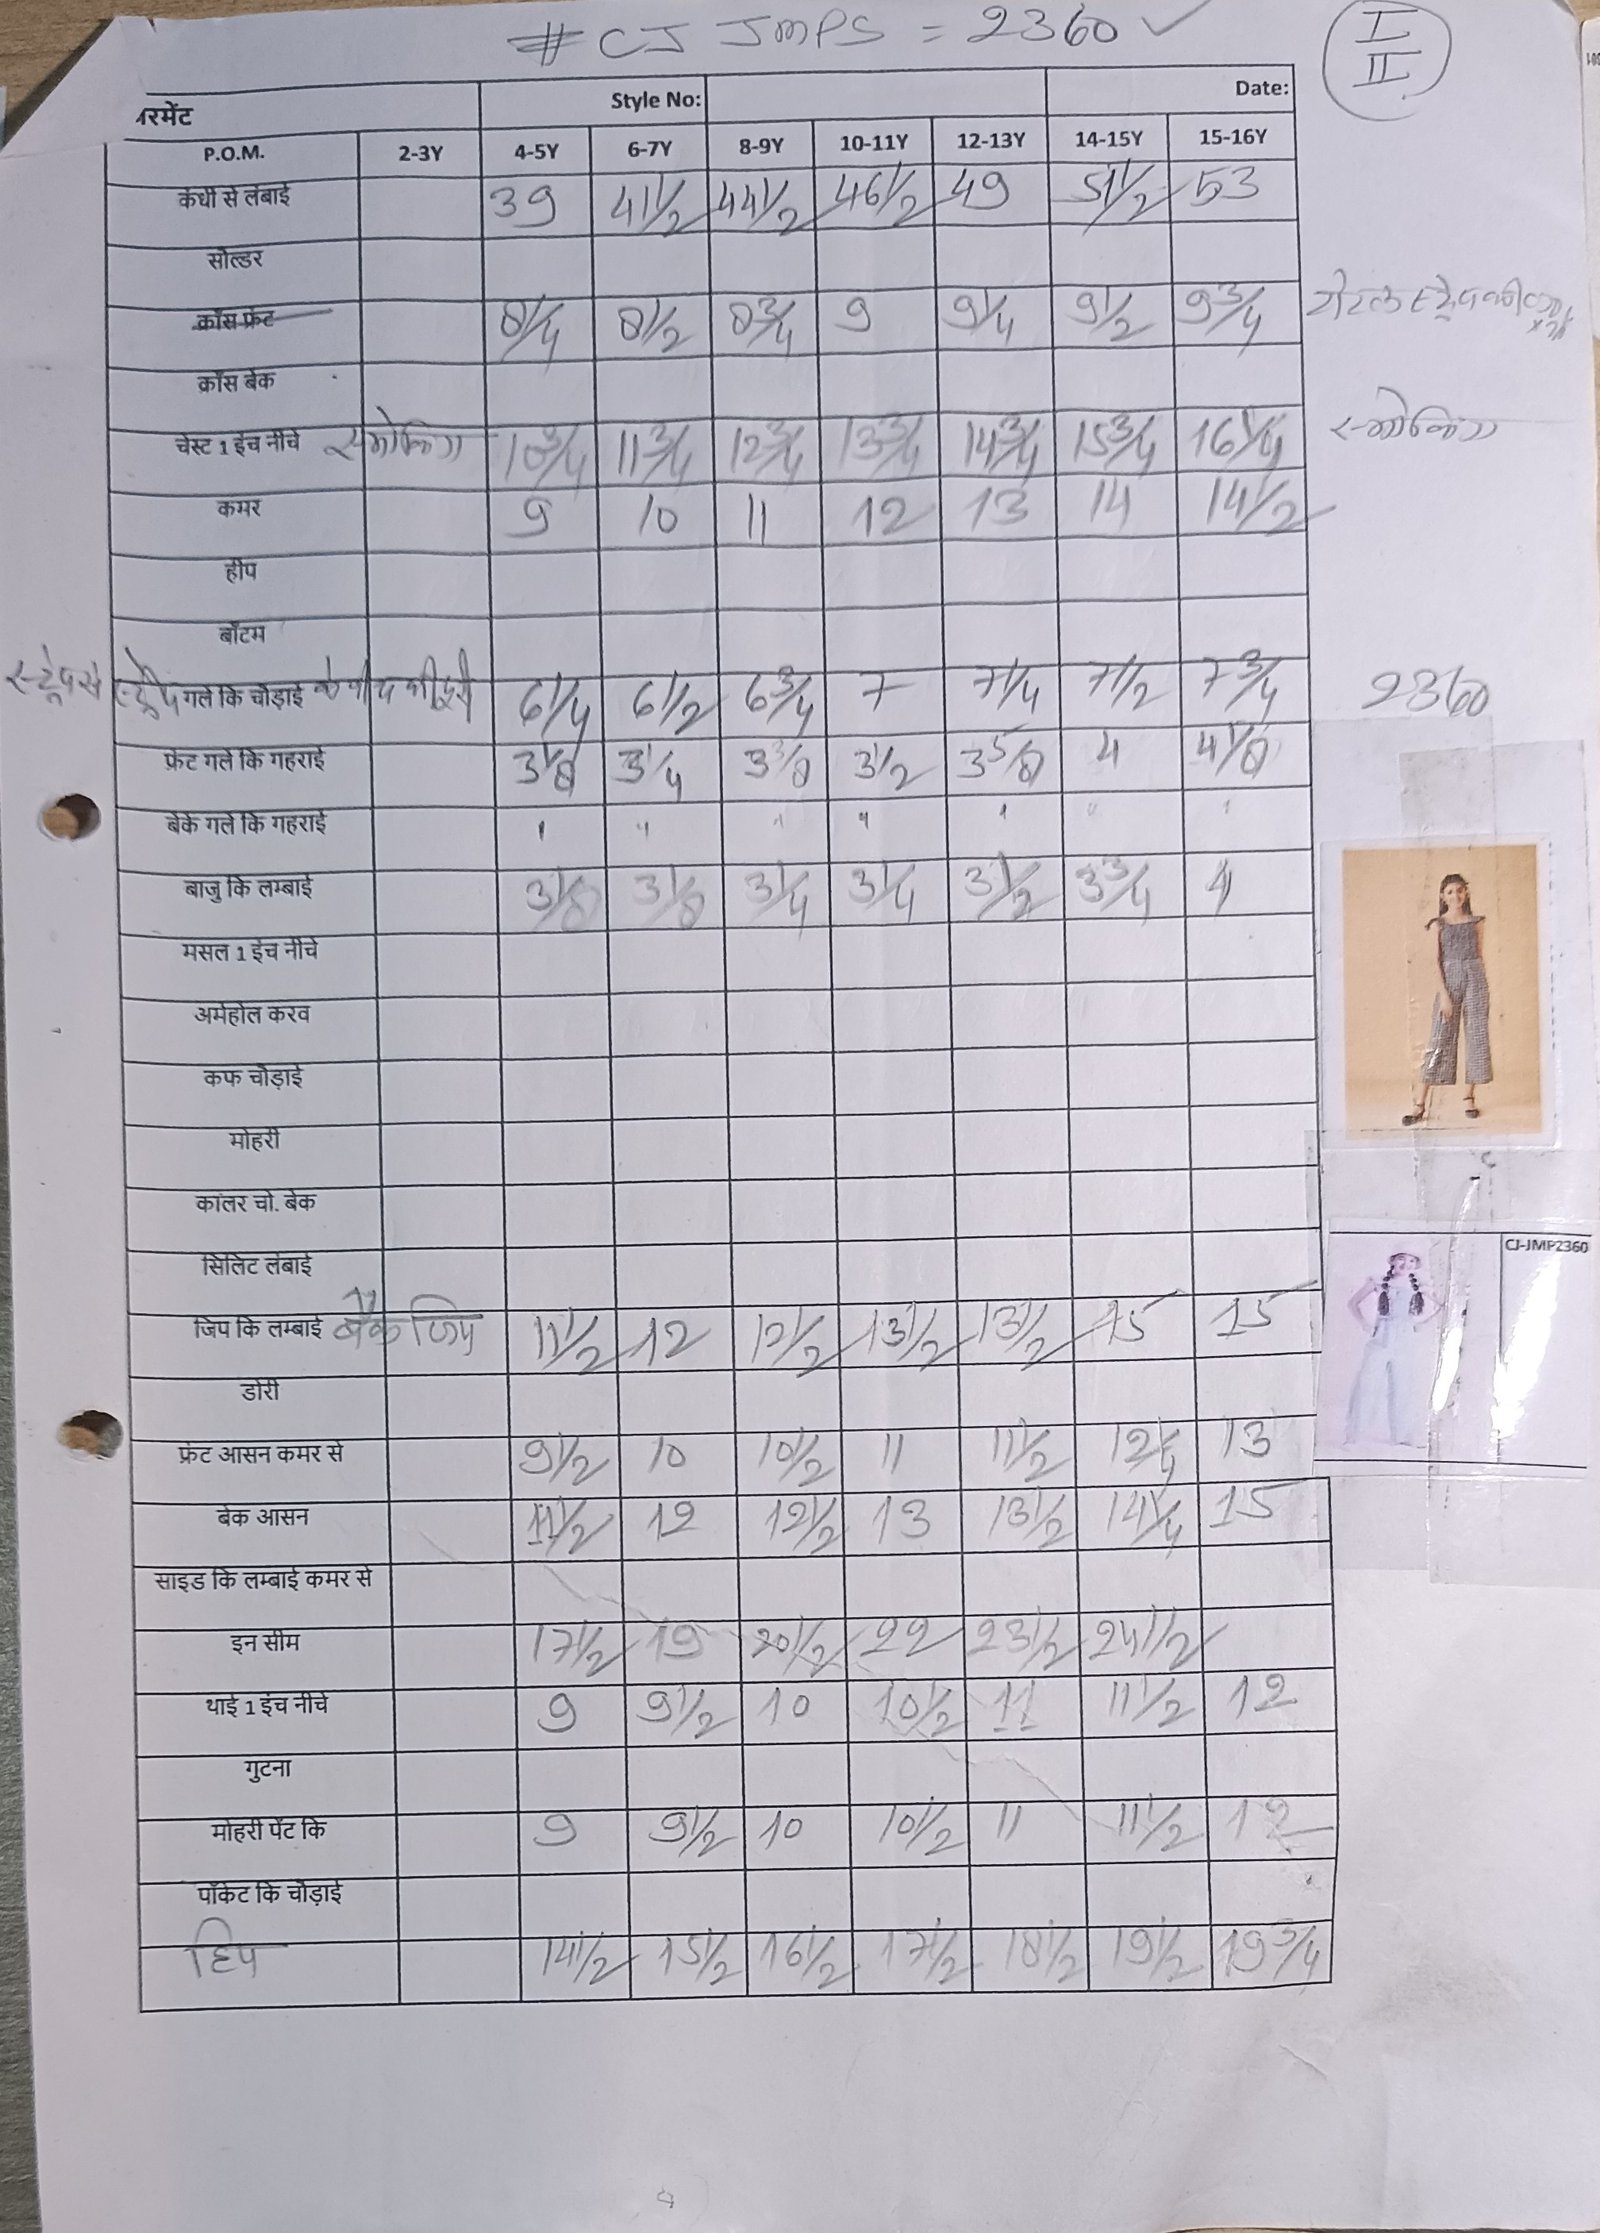 # CJ JMPS = 2360 ✓
I
II
रमेंट Style No: Date:
P.O.M. 2-3Y 4-5Y 6-7Y 8-9Y 10-11Y 12-13Y 14-15Y 15-16Y
कंधी से लंबाई 39 41 1/2 44 1/2 46 1/2 49 51 1/2 53
सोल्डर
क्रॉस फ्रंट 8 1/4 8 1/2 8 3/4 9 9 1/4 9 1/2 9 3/4
क्रॉस बेक
चेस्ट 1 इंच नीचे स्मोकिंग 10 3/4 11 3/4 12 3/4 13 3/4 14 3/4 15 3/4 16 1/4 स्मोकिंग
कमर 9 10 11 12 13 14 14 1/2
हीप
बॉटम
स्ट्रेप से स्ट्रेप गले कि चौड़ाई 6 1/4 6 1/2 6 3/4 7 7 1/4 7 1/2 7 3/4 2360
फ्रंट गले कि गहराई 3 1/8 3 1/4 3 3/8 3 1/2 3 5/8 4 4 1/8
बेके गले कि गहराई
बाजु कि लम्बाई 3 1/8 3 1/8 3 1/4 3 1/4 3 1/2 3 3/4 4
मसल 1 इंच नीचे
अर्महोल करव
कफ चौड़ाई
मोहरी
कॉलर चो. बेक
सिलिट लंबाई
CJ-JMP2360
जिप कि लम्बाई बैक जिप 11 1/2 12 12 1/2 13 1/2 13 1/2 15 15
डोरी
फ्रंट आसन कमर से 9 1/2 10 10 1/2 11 11 1/2 12 1/4 13
बेक आसन 11 1/2 12 12 1/2 13 13 1/2 14 1/4 15
साइड कि लम्बाई कमर से
इन सीम 17 1/2 19 20 1/2 22 23 1/2 24 1/2
थाई 1 इंच नीचे 9 9 1/2 10 10 1/2 11 11 1/2 12
गुटना
मोहरी पेंट कि 9 9 1/2 10 10 1/2 11 11 1/2 12
पॉकेट कि चौड़ाई
हिप 14 1/2 15 1/2 16 1/2 17 1/2 18 1/2 19 1/2 19 3/4